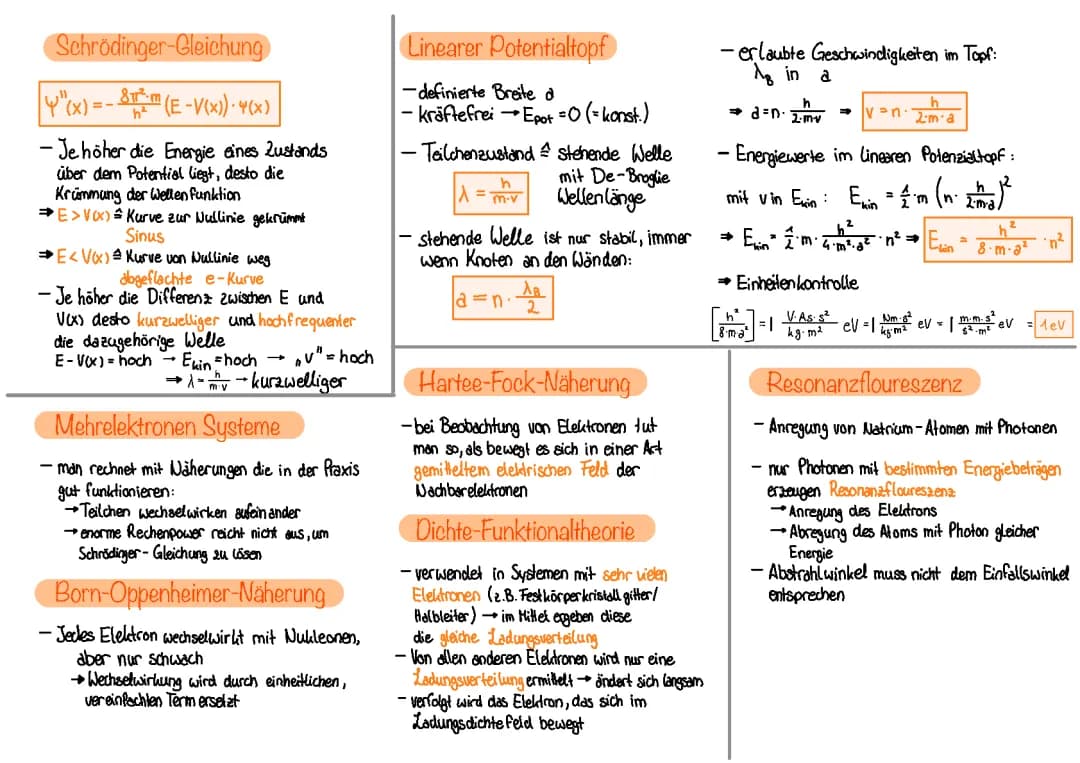 Schrödinger-Gleichung
Ψ''(x) = - 8π²·m/h² (E - V(x)) · Ψ(x)
- Je höher die Energie eines Zustands
über dem Potential liegt, desto die
Krümmung der Wellenfunktion
⇒ E > V(x) ≙ Kurve zur Nullinie gekrümmt
Sinus
⇒ E < V(x) ≙ Kurve von Nullinie weg
abgeflachte e-Kurve
- Je höher die Differenz zwischen E und
V(x) desto kurzwelliger und hochfrequenter
die dazugehörige Welle
E - V(x) = hoch → Ekin = hoch → „v" = hoch
⇒ λ = h/m·v → kurzwelliger
Linearer Potentialtopf
- definierte Breite a
- kräftefrei → Epot = 0 (= konst.)
- Teilchenzustand ≙ stehende Welle
mit De-Broglie
Wellenlänge
λ = h/m·v
- stehende Welle ist nur stabil, immer
wenn Knoten an den Wänden:
a = n · λB/2
- erlaubte Geschwindigkeiten im Topf:
λB in a
⇒ a = n · h/2·m·v ⇒ v = n · h/2·m·a
- Energiewerte im linearen Potenzialtopf:
mit v in Ekin : Ekin = 1/2 · m (n · h/2·m·a)²
⇒ Ekin = 1/2 · m · h²/4·m²·a² · n² ⇒ Ekin = h²/8·m·a² · n²
⇒ Einheitenkontrolle
[h²/8·m·a²] = 1 V·As·s²/kg·m² eV = 1 Nm·s²/kg·m² eV = 1 m·m·s²/s²·m² eV = 1eV
Mehrelektronen Systeme
- man rechnet mit Näherungen die in der Praxis
gut funktionieren:
→ Teilchen wechselwirken aufeinander
→ enorme Rechenpower reicht nicht aus, um
Schrödinger-Gleichung zu lösen
Born-Oppenheimer-Näherung
- Jedes Elektron wechselwirkt mit Nukleonen,
aber nur schwach
→ Wechselwirkung wird durch einheitlichen,
vereinfachten Term ersetzt
Hartee-Fock-Näherung
- bei Beobachtung von Elektronen tut
man so, als bewegt es sich in einer Art
gemitteltem elektrischen Feld der
Nachbarelektronen
Dichte-Funktionaltheorie
- verwendet in Systemen mit sehr vielen
Elektronen (z.B. Festkörperkristallgitter/
Halbleiter) → im Mittel ergeben diese
die gleiche Ladungsverteilung
- Von allen anderen Elektronen wird nur eine
Ladungsverteilung ermittelt → ändert sich langsam
- verfolgt wird das Elektron, das sich im
Ladungsdichtefeld bewegt
Resonanzfloureszenz
- Anregung von Natrium-Atomen mit Photonen
- nur Photonen mit bestimmten Energiebeträgen
erzeugen Resonanzfloureszenz
→ Anregung des Elektrons
→ Abregung des Atoms mit Photon gleicher
Energie
- Abstrahlwinkel muss nicht dem Einfallswinkel
entsprechen